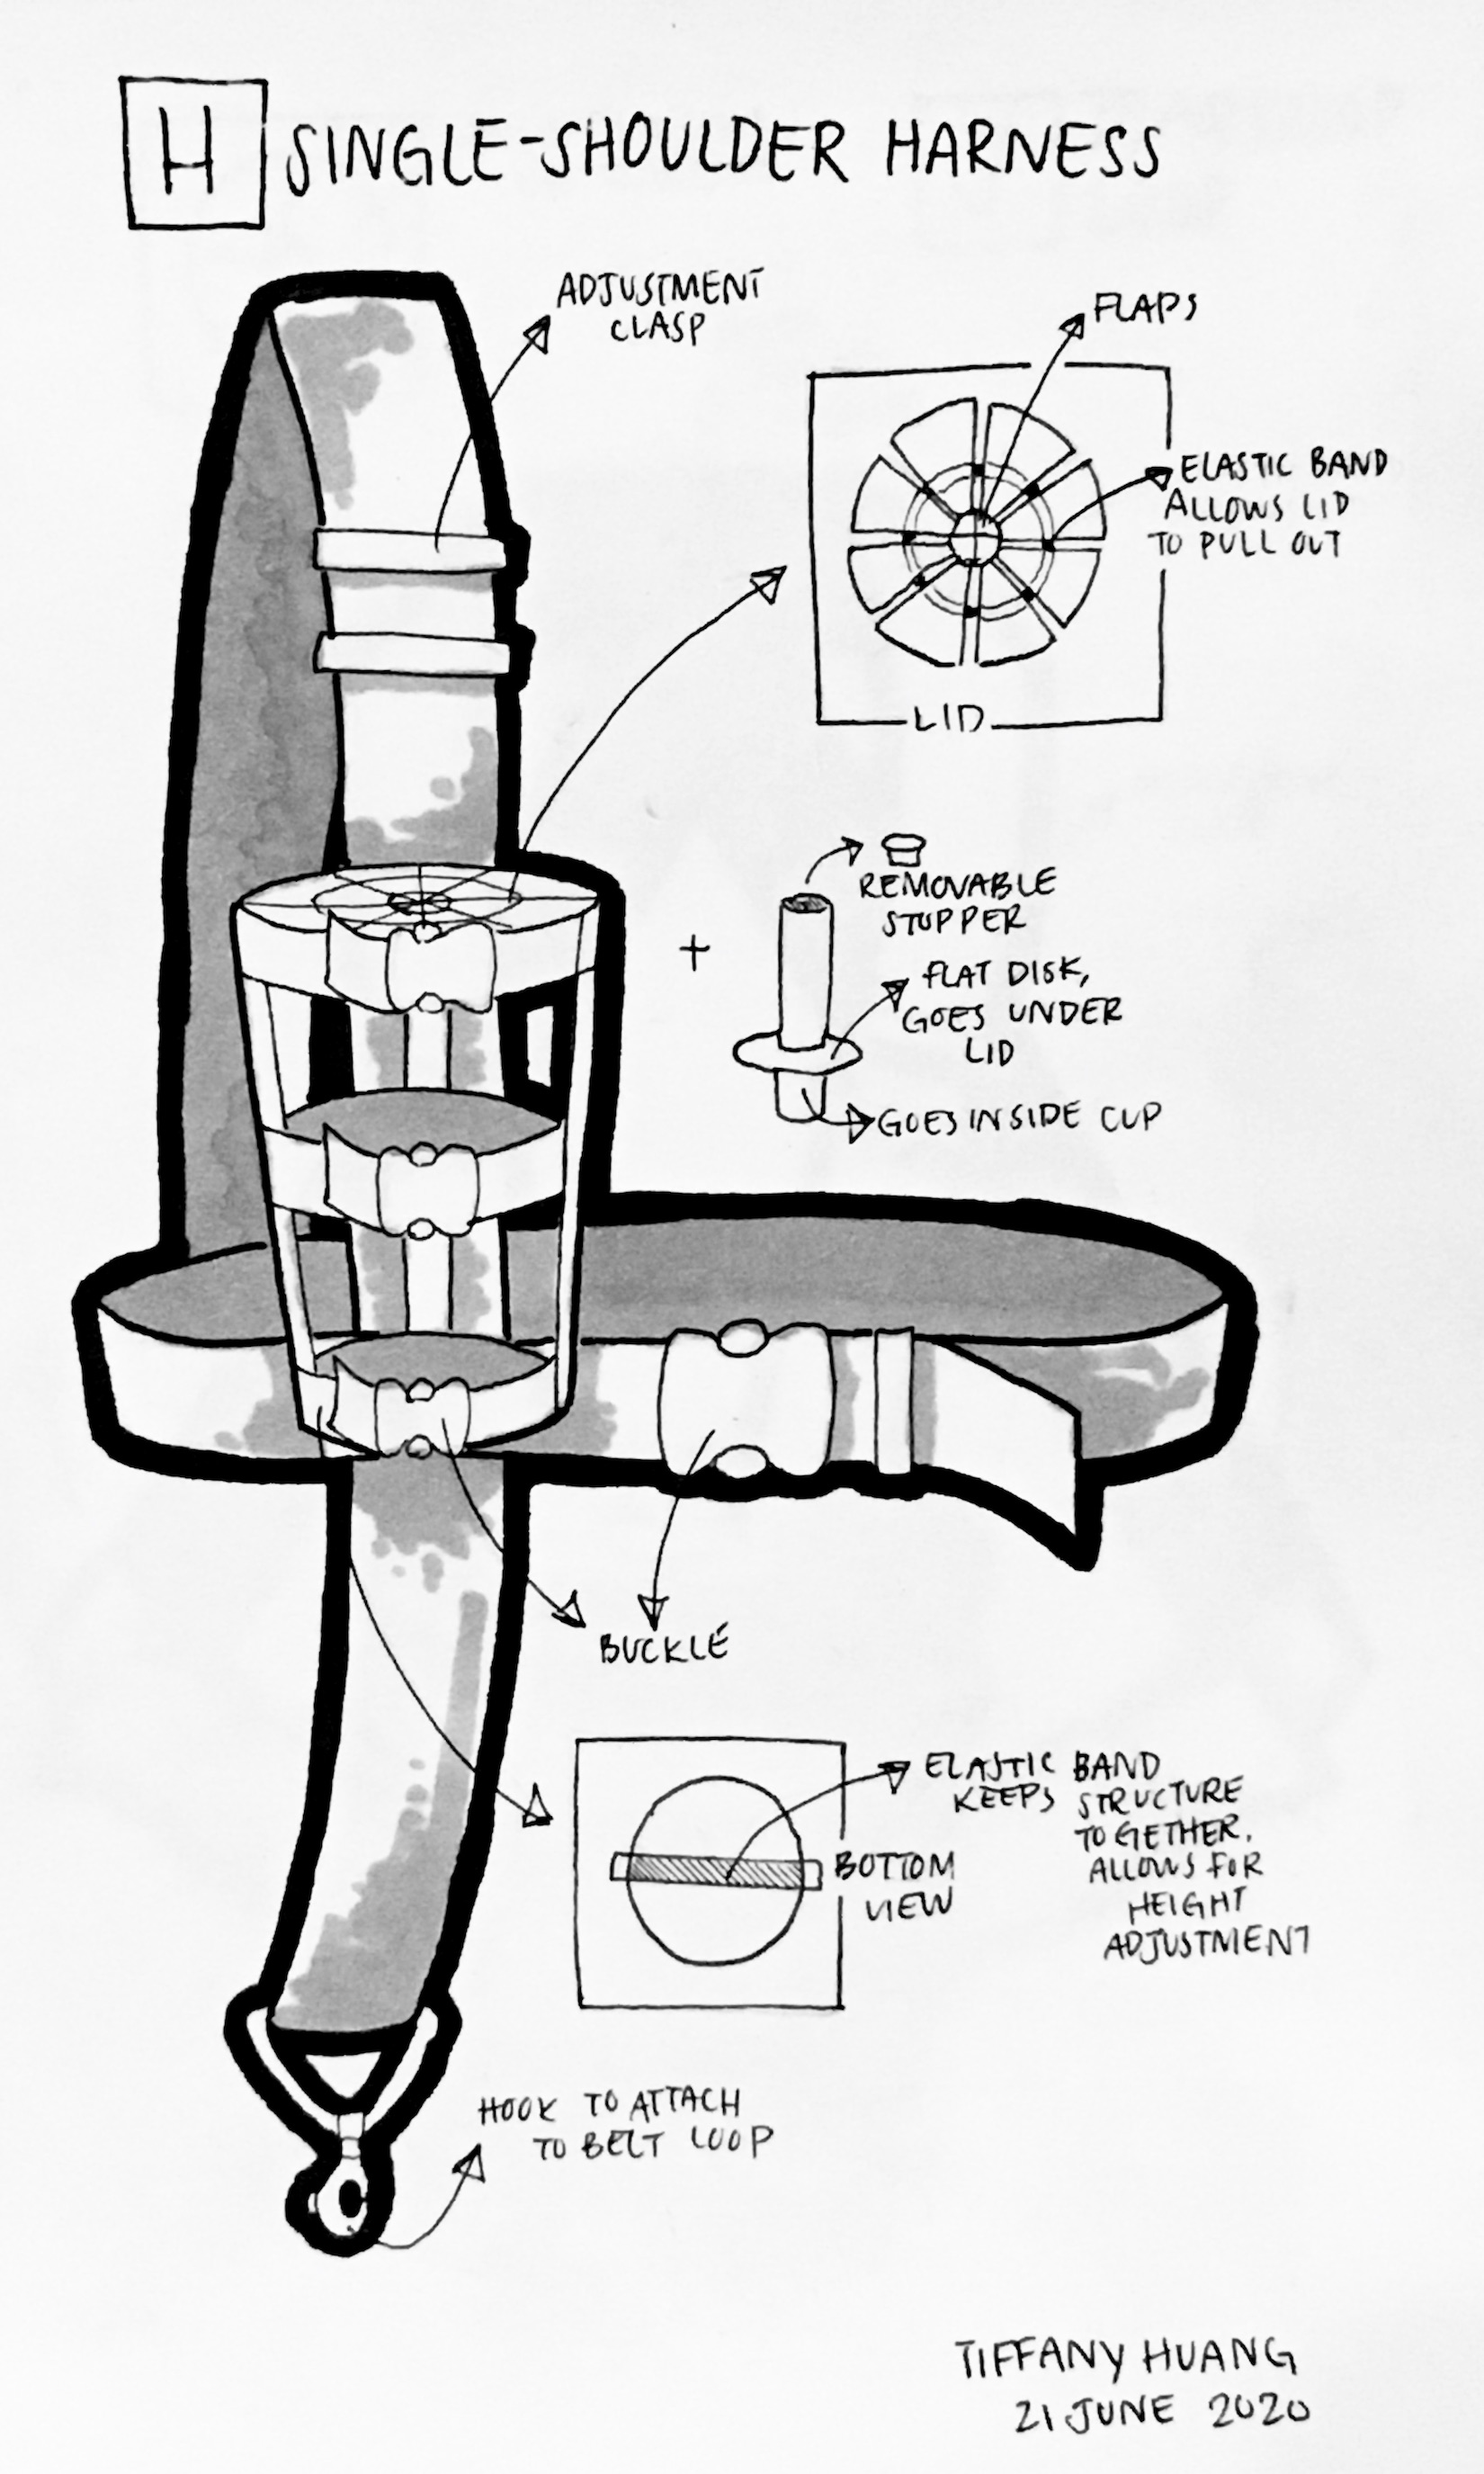 H SINGLE-SHOULDER HARNESS
ADJUSTMENT
CLASP
FLAPS
ELASTIC BAND
ALLOWS LID
TO PULL OUT
LID
+
REMOVABLE
STOPPER
FLAT DISK,
GOES UNDER
LID
GOES INSIDE CUP
BUCKLE
ELASTIC BAND
KEEPS STRUCTURE
TOGETHER.
ALLOWS FOR
HEIGHT
ADJUSTMENT
BOTTOM
VIEW
HOOK TO ATTACH
TO BELT LOOP
TIFFANY HUANG
21 JUNE 2020